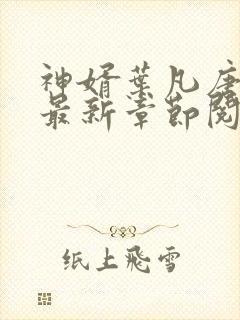 神婿叶凡唐
最新章節閱
纸上飛雪